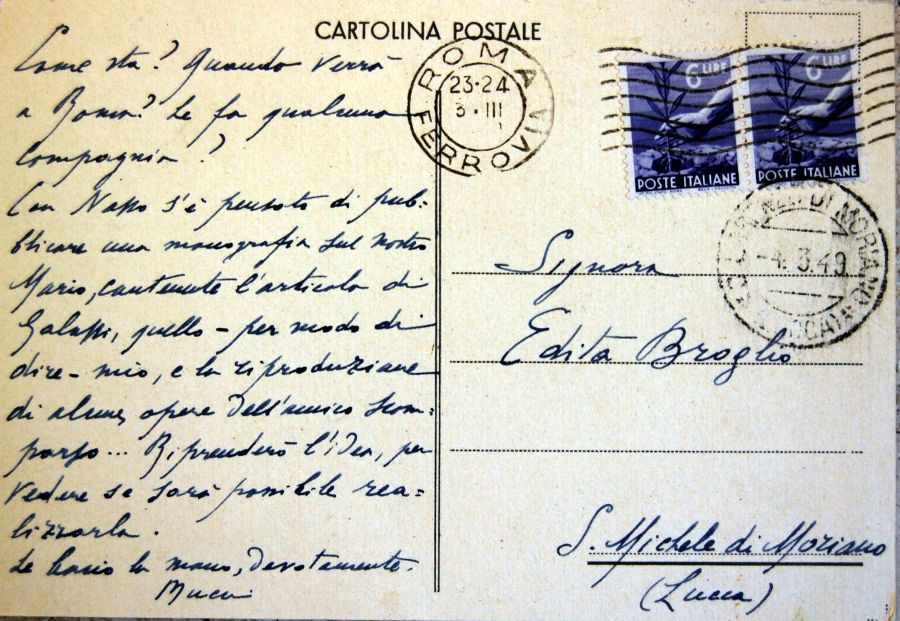 CARTOLINA POSTALE
Come sta? Quando verrà
a Roma? Le fa qualcuno
compagnia?
Con Nasso s'è pensato di pub=
blicare una monografia sul nostro
Mario, contenente l'articolo di
Galassi, quello - per modo di
dire - mio, e la riproduzione
di alcune opere dell'amico scom=
parso... Riprenderò l'idea, per
vedere se sarà possibile rea=
lizzarla.
Le bacio la mano, devotamente.
ROMA
23-24
3·III
FERROVIA
6 LIRE
POSTE ITALIANE
6 LIRE
POSTE ITALIANE
DI MORIANO
-4.3.49
Signora
Edita Broglio
S. Michele di Moriano
(Lucca)